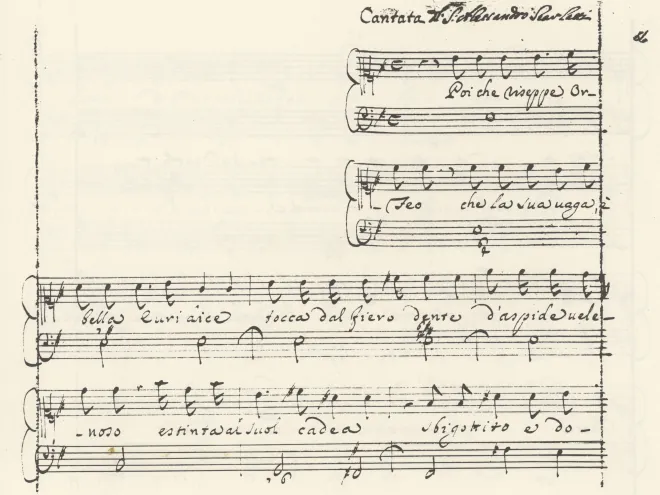 Cantata Del S. Alessandro Scarlatti
Poi che riseppe Or-
-feo che la sua uaga, e
bella Euridice tocca dal fiero dente d'aspide uele-
-noso estinta al suol cadea sbigottito e do-